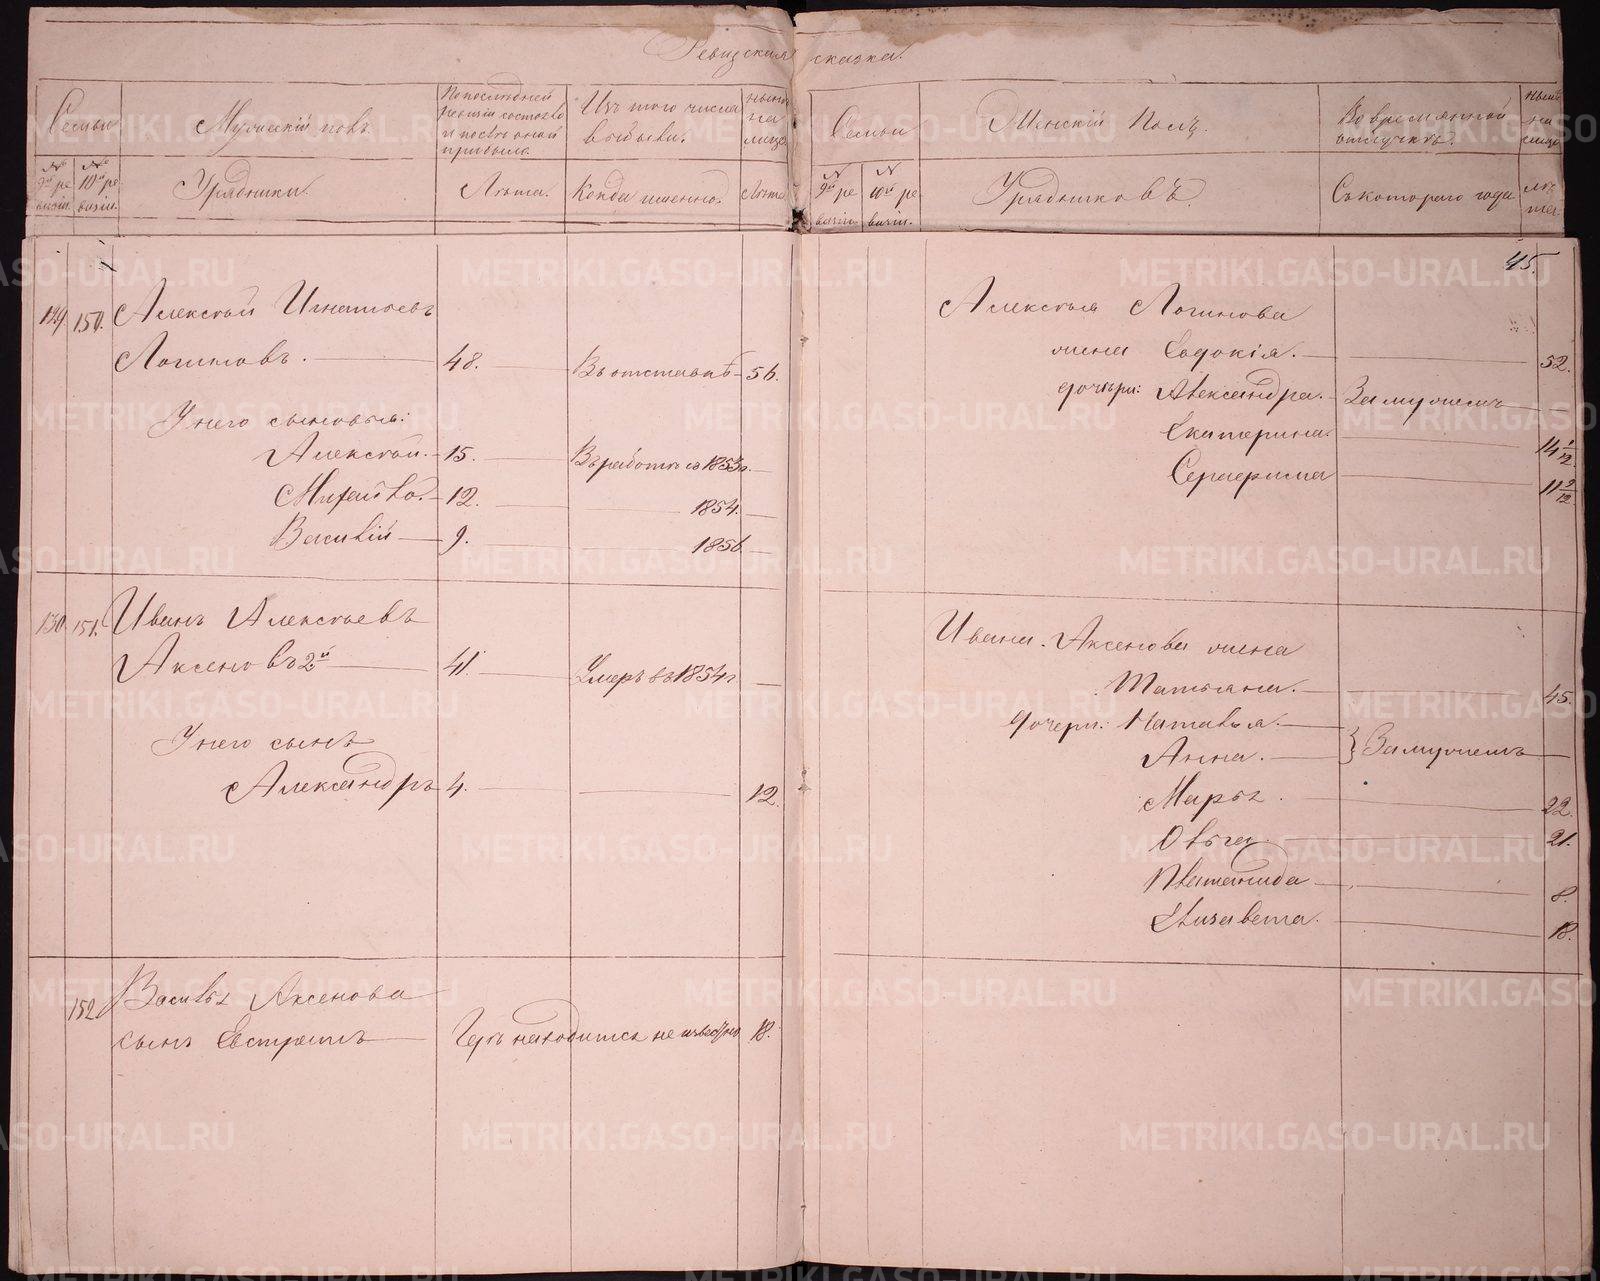 Ревизская сказка.
Семьи
Мужескiй полъ.
По последней ревизiи состояло и после оной прибыло.
Изъ того числа выбыли.
ныне на лицо
№ 9й ревизiи.
№ 10й ревизiи.
Урядники.
Лета.
Когда именно.
Лета
129
150.
Алексей Игнатьевъ
Логиновъ.
48.
Въ отставке
56.
У него сыновья:
Алексей.
15.
Въ работе съ 1853 г.
Михайло.
12.
1854.
Василiй
9.
1856.
130
151.
Иванъ Алексеевъ
Аксеновъ 2й
41.
Умеръ въ 1854 г
У него сынъ
Александръ
4.
12.
152
Василья Аксенова
сынъ Евстратъ
Где находится не известно
18.
Семьи
Женскiй Полъ.
Во временной отлучке.
ныне на лицо
№ 9й ревизiи.
№ 10й ревизiи.
Урядниковъ
Съ котораго года
лета
45.
Алексея Логинова
жена Евдокiя.
52.
дочери: Александра.
Замужемъ
Екатерина.
14 1/12.
Серафима
11 2/12
Ивана Аксенова жена
Татьяна.
45.
дочери: Наталья.
Анна.
Замужемъ
Марья.
22.
Ольга
21.
Платонида
8.
Елизавета.
18.
METRIKI.GASO-URAL.RU